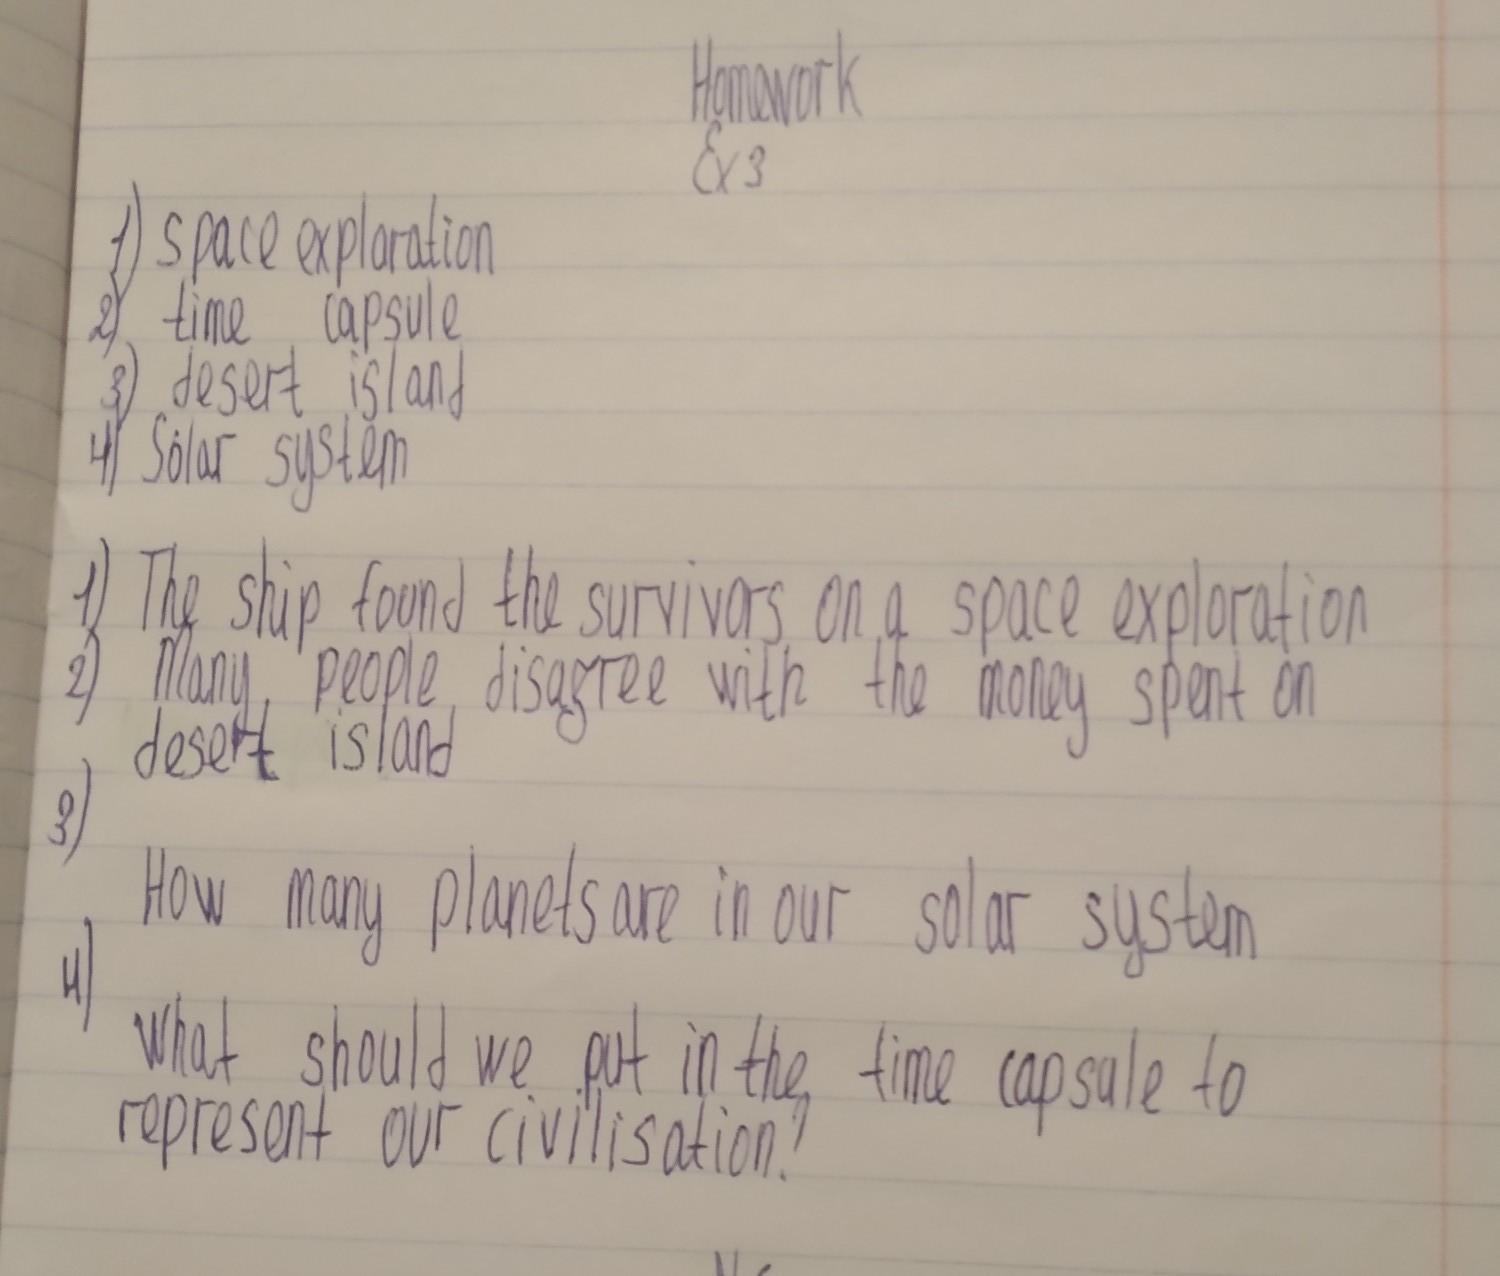 Homework
Ex 3
1) space exploration
2) time capsule
3) desert island
4) Solar system
1) The ship found the survivors on a space exploration
2) Many people disagree with the money spent on
desert island
3)
How many planets are in our solar system
4)
What should we put in the time capsule to
represent our civilisation?